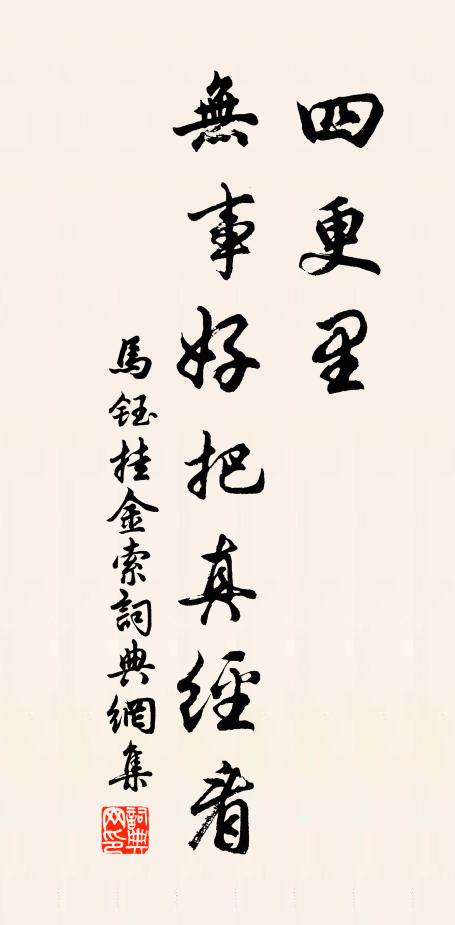 四更里
無事好把真經看
馬鈺挂金索詞典網集
詞典網印